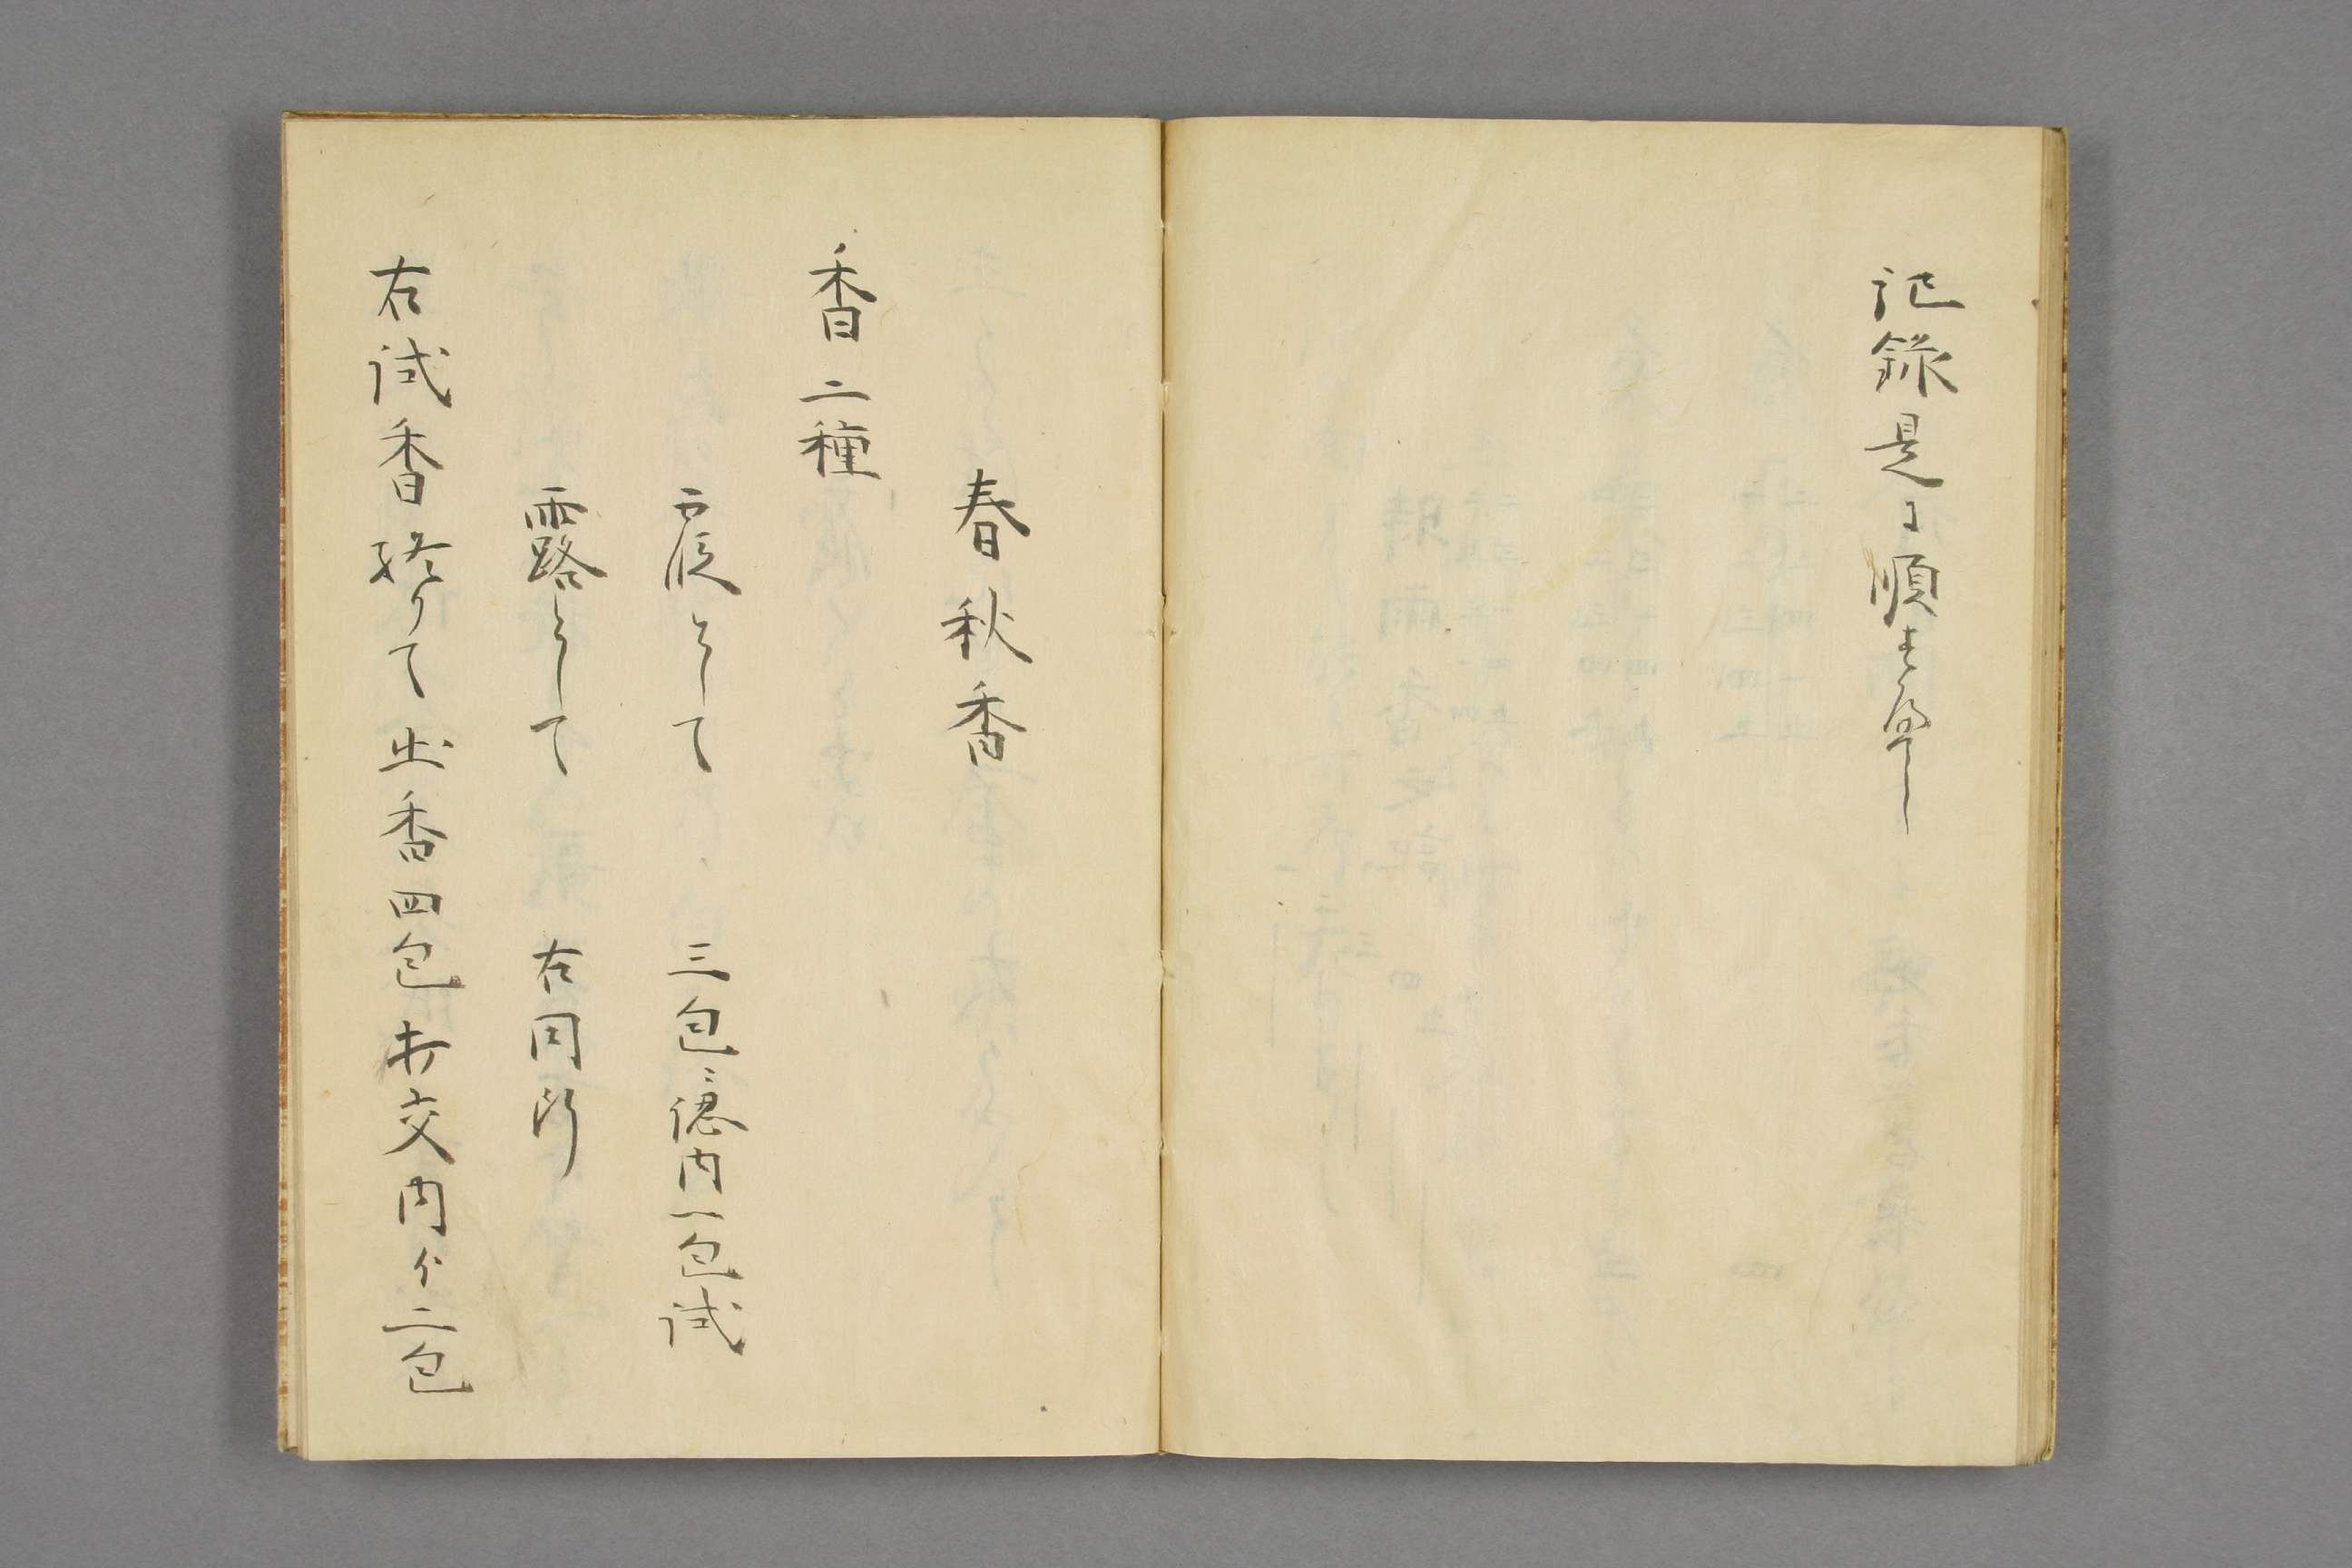 記録是に順すへし
春秋香
香二種
霞として　三包ニ認内一包試
露として　右同断
右試香終りて出香四包打交内ゟ二包